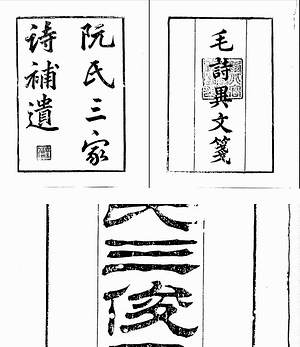 阮氏三家
詩補遺
毛詩異文箋
氏三俊